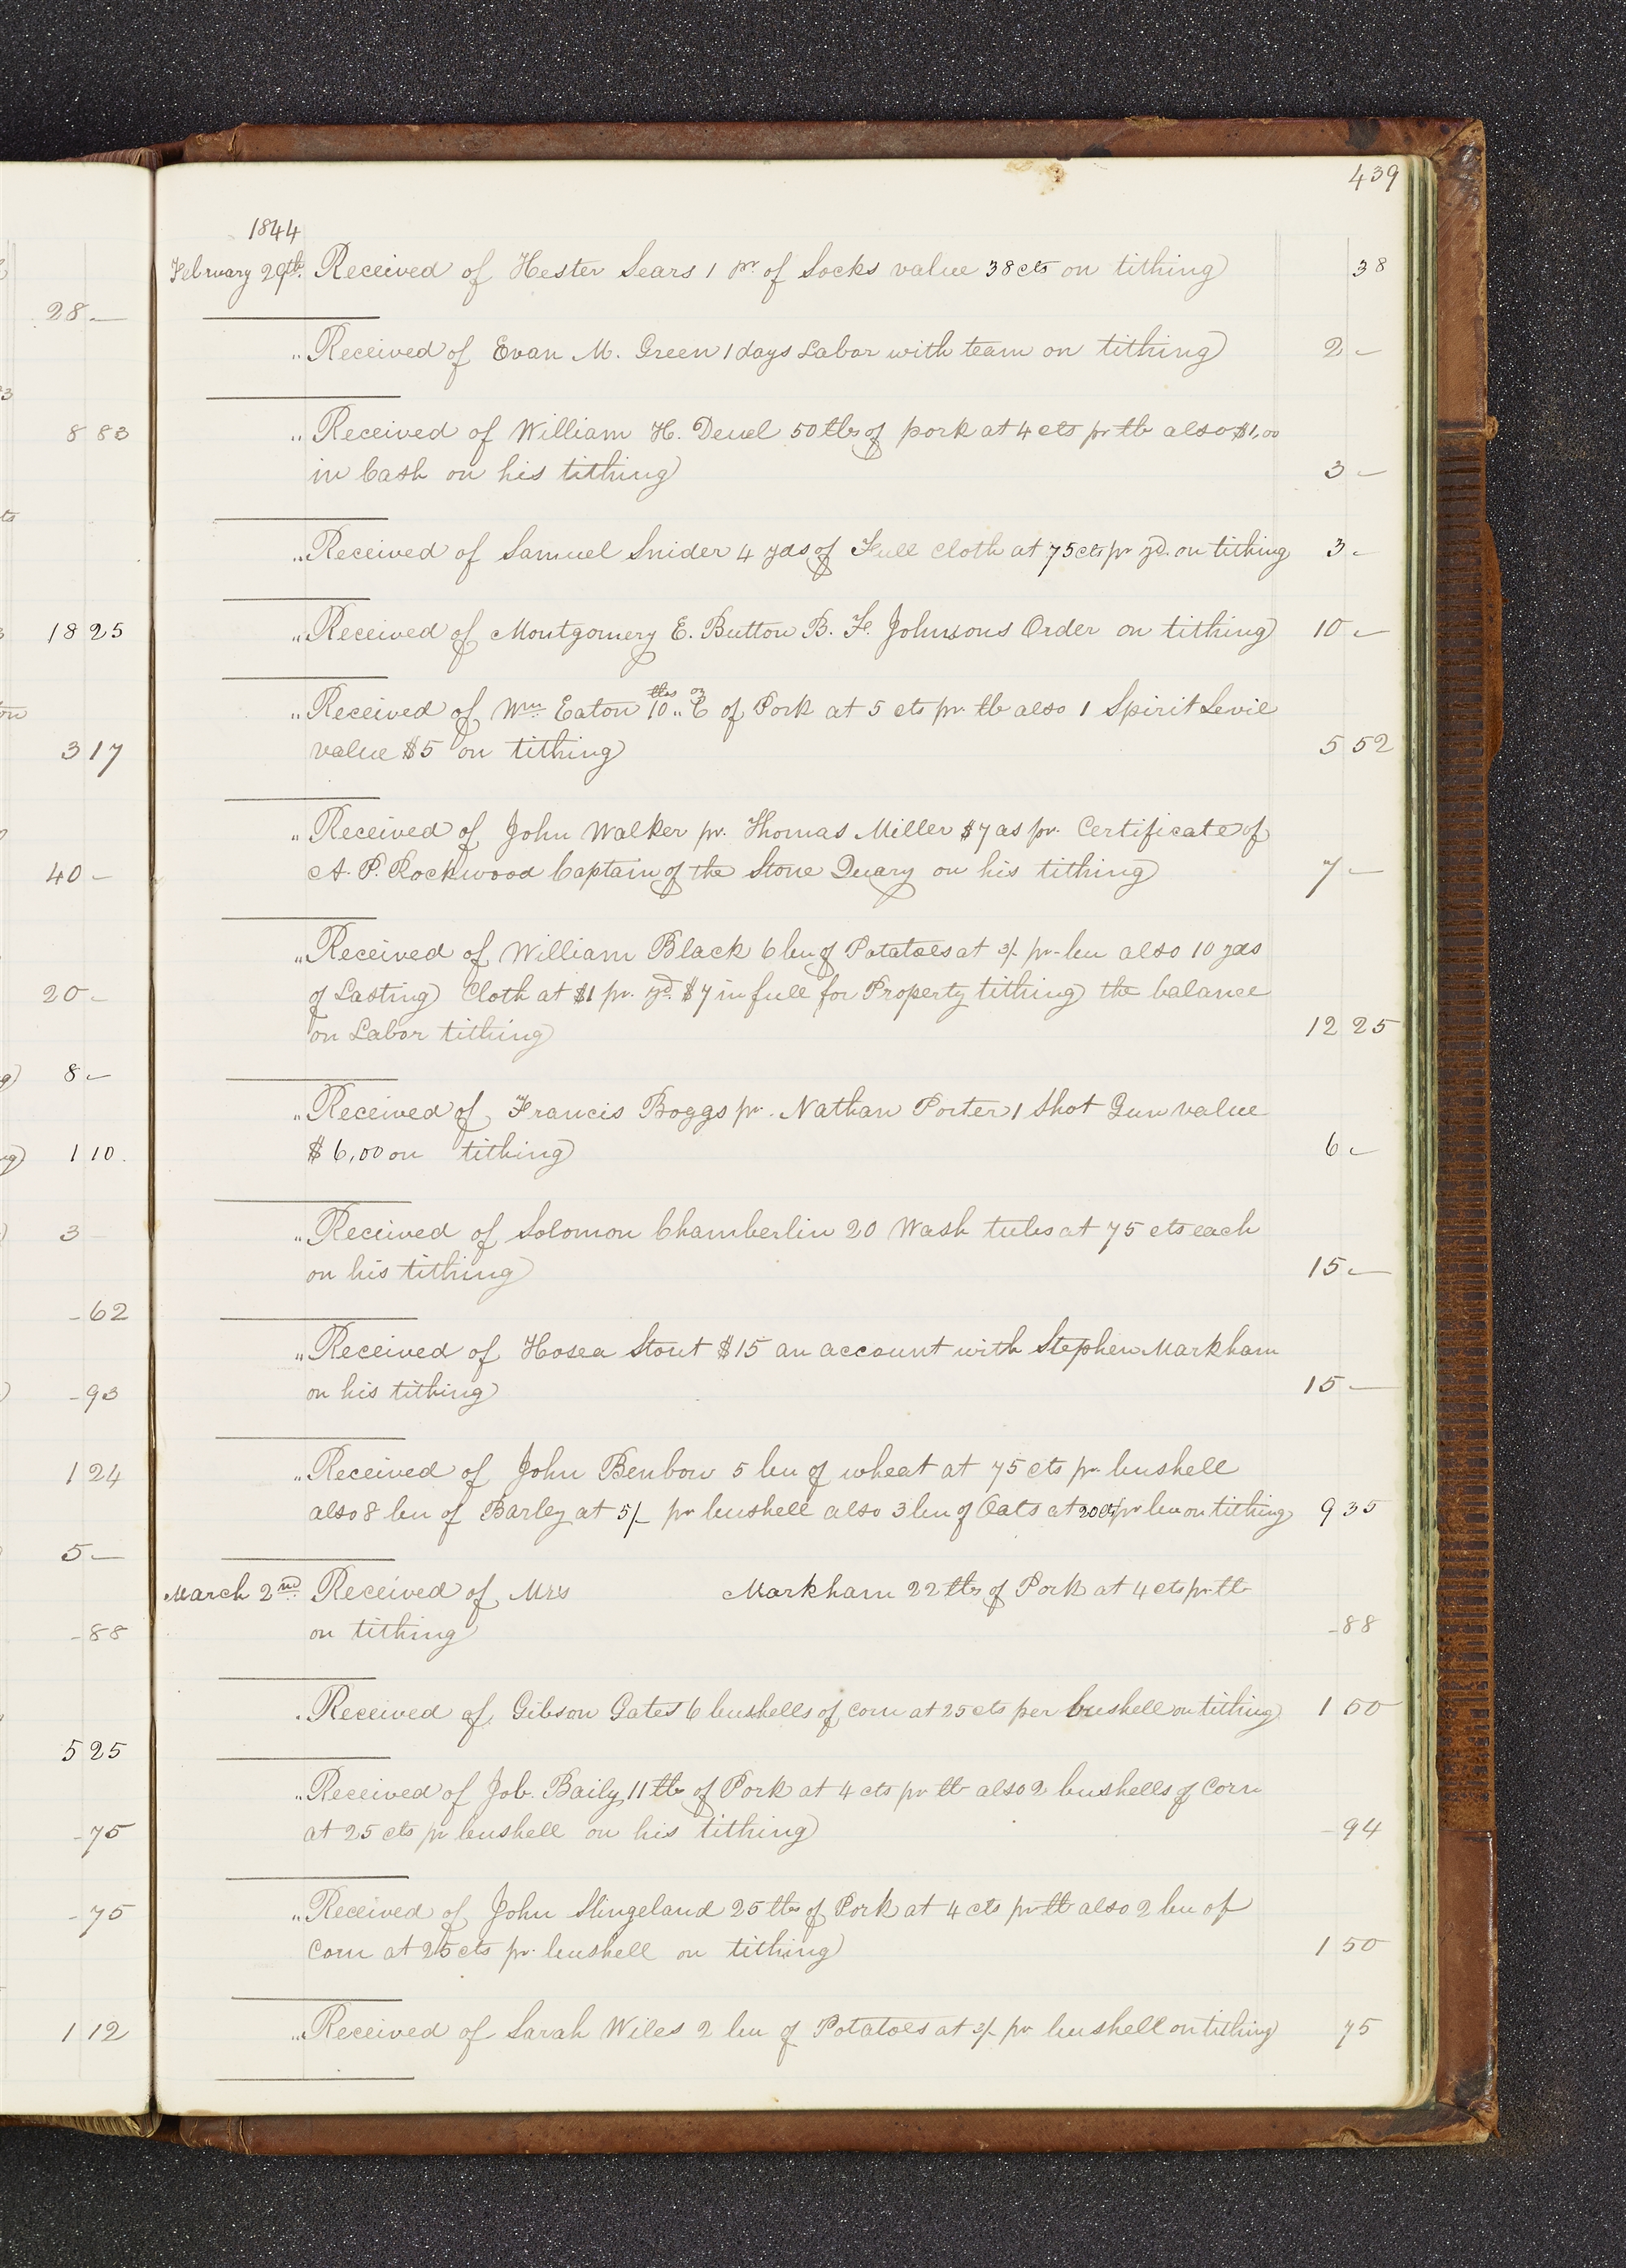 439
1844
February 29th. Received of Hester Sears 1 pr of Socks value 38 cts on tithing 38
28 —
" Received of Evan M. Green 1 days Labor with team on tithing 2 —
8 83 " Received of William H. Deuel 50 lbs of pork at 4 cts pr lb also $1,00
in Cash on his tithing 3 —
" Received of Samuel Snider 4 yds of Full Cloth at 75 cts pr yd. on tithing 3 —
18 25 " Received of Montgomery E. Button B. F. Johnsons Order on tithing 10 —
" Received of Wm. Eaton 10 lbs " 6 oz of Pork at 5 cts pr lb also 1 Spirit Levil
3 17 value $5 on tithing 5 52
" Received of John Walker pr. Thomas Miller $7 as pr. Certificate of
40 — A. P. Rockwood Captain of the Stone Quary on his tithing 7 —
" Received of William Black 6 bu of Potatoes at 3/- pr bu also 10 yds
20 — of Lasting Cloth at $1 pr. yd. $7 in full for Property tithing the balance
on Labor tithing 12 25
8 —
" Received of Francis Boggs pr. Nathan Porter 1 Shot Gun value
1 10 $6,00 on tithing 6 —
3 — " Received of Solomon Chamberlin 20 Wash tubs at 75 cts each
on his tithing 15 —
- 62
" Received of Hosea Stout $15 an account with Stephen Markham
- 93 on his tithing 15 —
1 24 " Received of John Benbow 5 bu of wheat at 75 cts pr bushell
also 8 bu of Barley at 5/- pr bushell also 3 bu of Oats at 20 cts pr bu on tithing 9 35
5 —
March 2nd. Received of Mrs Markham 22 lbs of Pork at 4 cts pr lb
- 88 on tithing - 88
" Received of Gibson Gates 6 bushells of corn at 25 cts per bushell on tithing 1 50
5 25
" Received of Job. Baily 11 lbs of Pork at 4 cts pr lb also 2 bushells of Corn
- 75 at 25 cts pr bushell on his tithing - 94
- 75 " Received of John Slingeland 25 lbs of Pork at 4 cts pr lb also 2 bu of
Corn at 25 cts pr. bushell on tithing 1 50
1 12 " Received of Sarah Wiles 2 bu of Potatoes at 3/- pr bushell on tithing 75